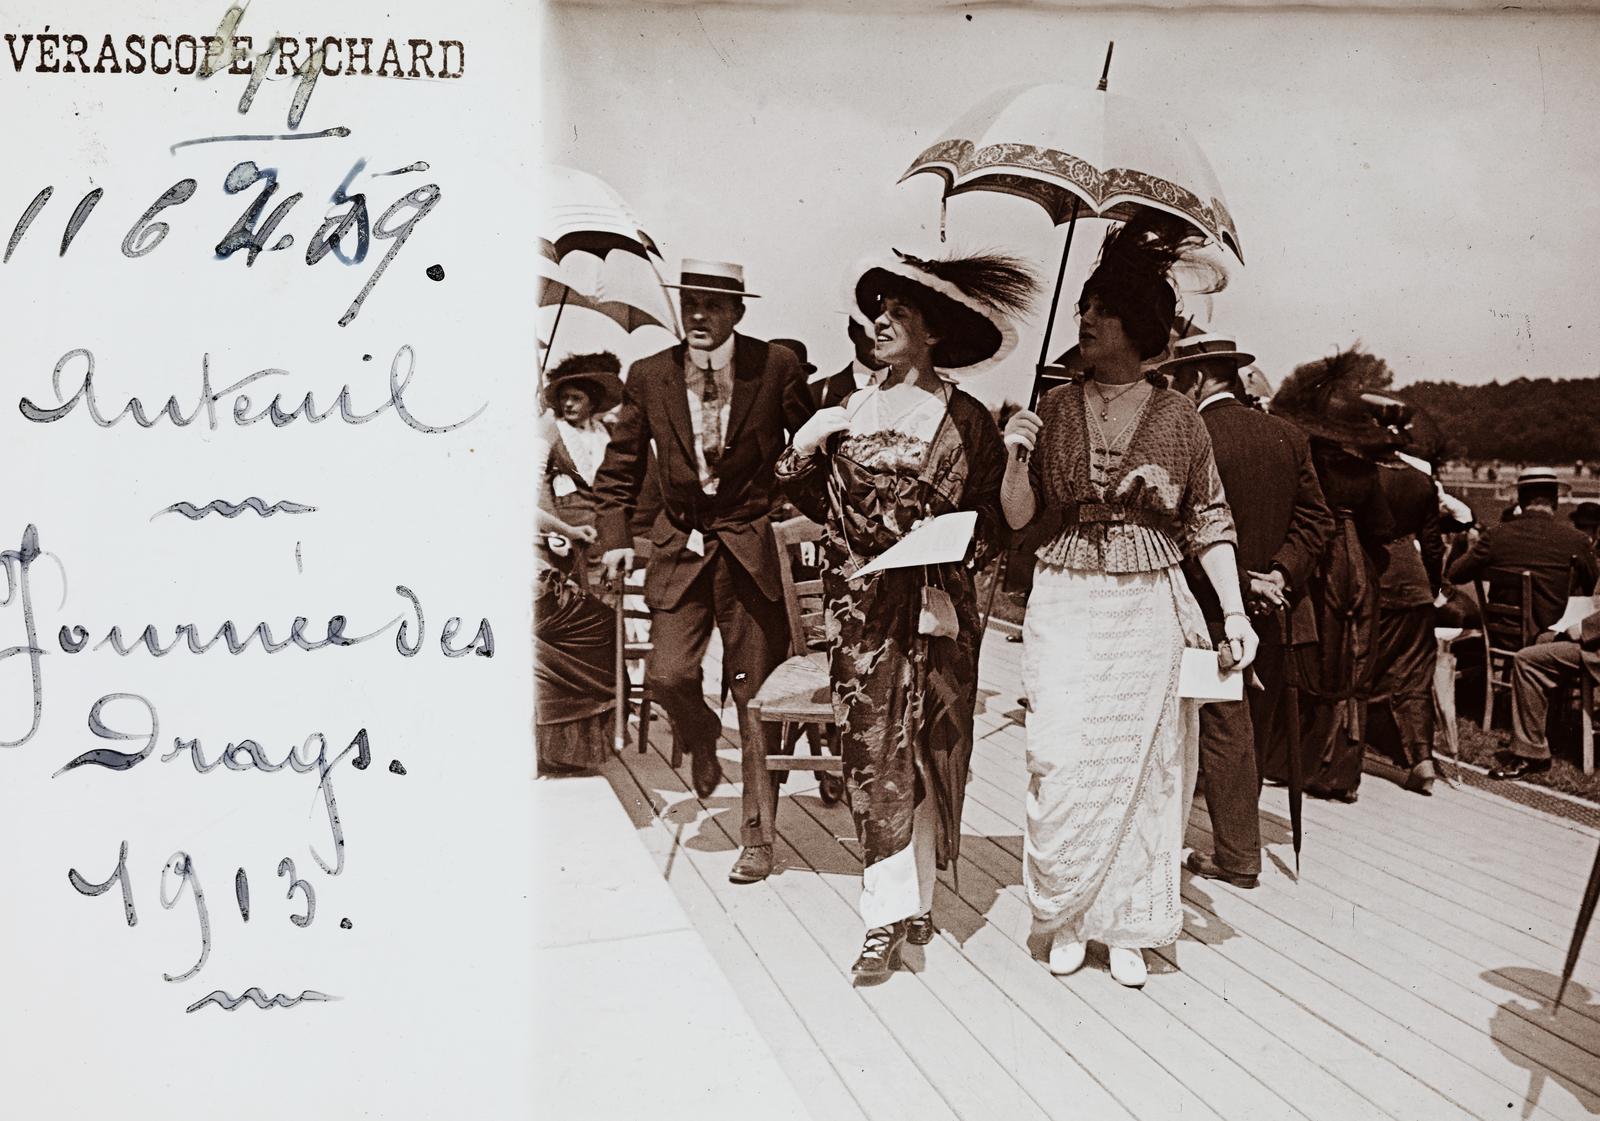 VÉRASCOPE RICHARD
44
Auteuil
Journée des
Drags.
1913.